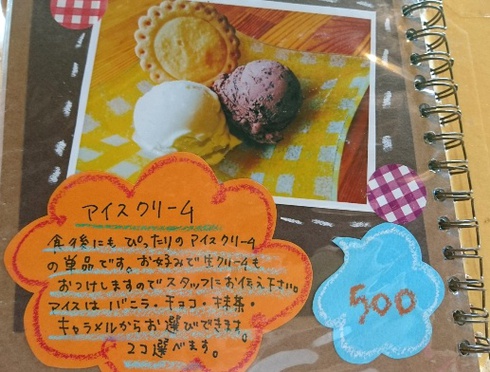 アイスクリーム
食後にも ぴったりの アイスクリーム
の単品です。お好みで生クリームも
おつけしますのでスタッフにお伝え下さい。
アイスは バニラ・チョコ・抹茶・
キャラメルからお選びできます。
2コ選べます。
500